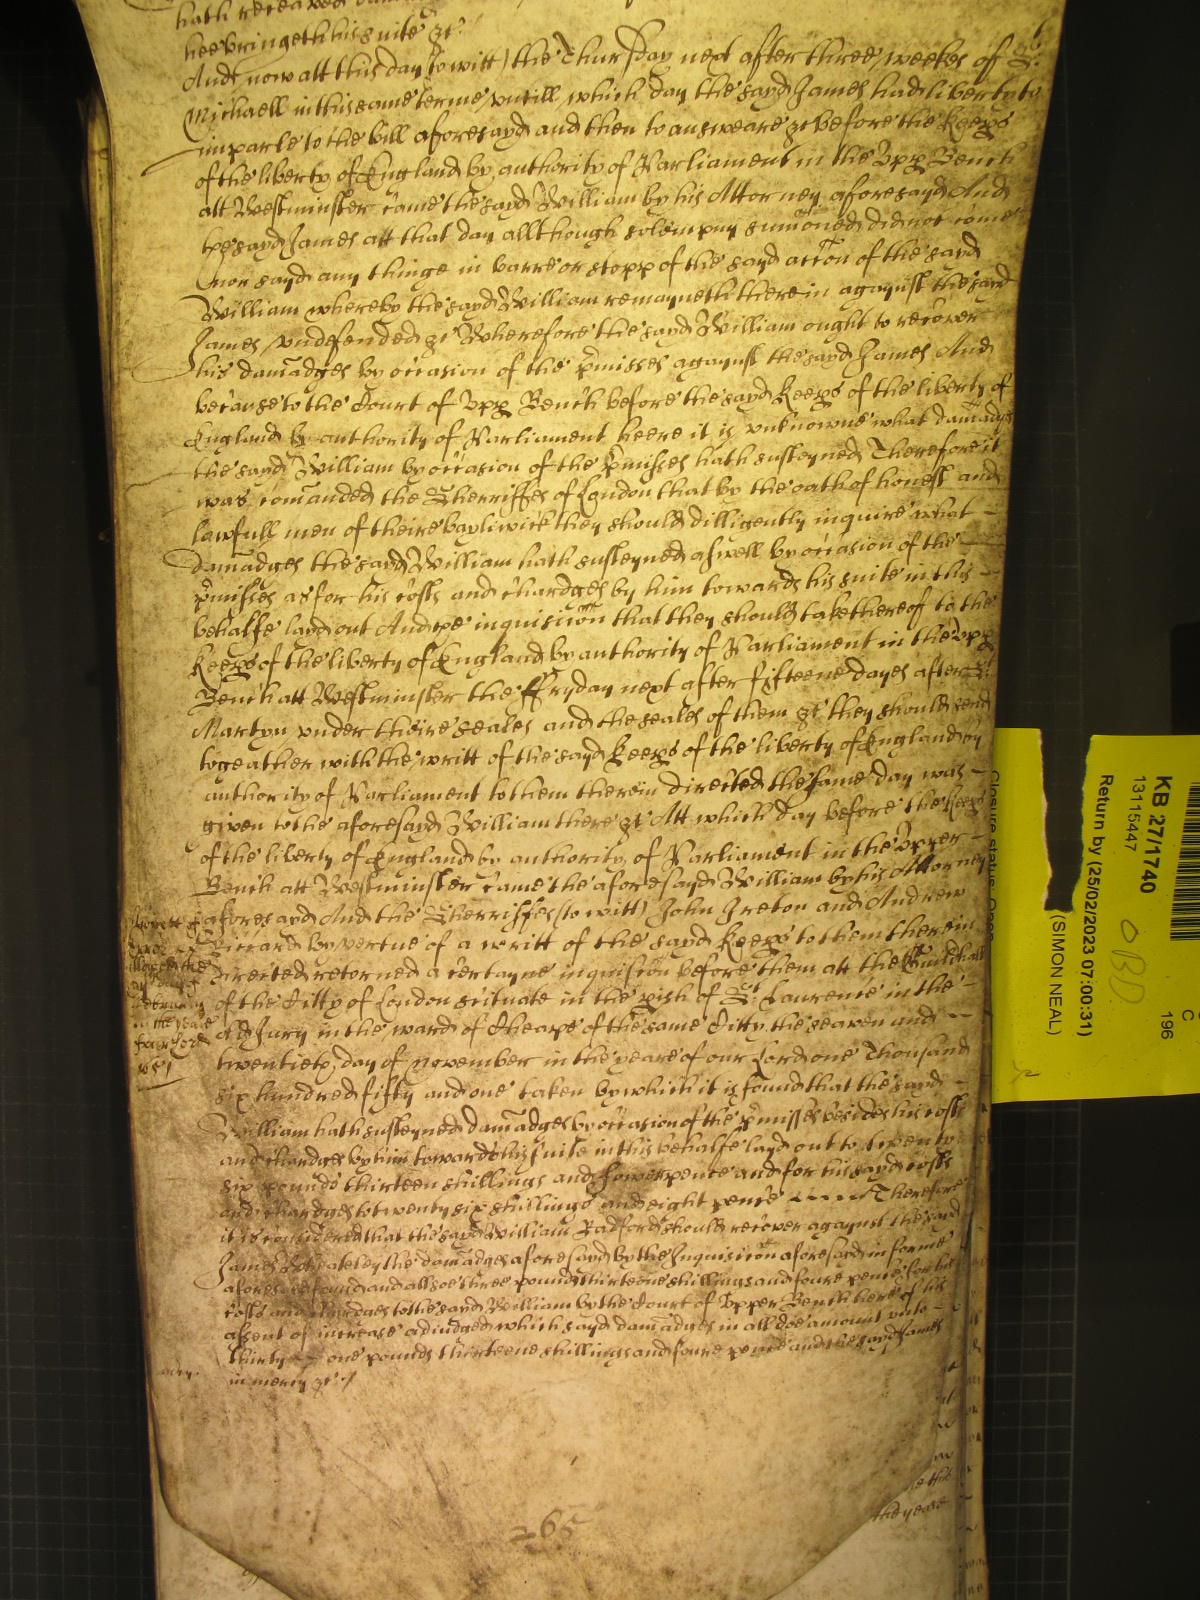 hath
hee bringeth his suite &c:
And now att this day (to witt) the Thursday next after three weekes of St.
Michaell in this same terme untill which day the sayd James had liberty to
imparle to the bill aforesayd and then to answeare &c before the Keeps
of the liberty of England by authority of Parliament in the Upp Bench
att Westminster came the sayd William by his Attorney aforesayd And
the sayd James att that day allthough solempny sumoned did not come
nor sayd any thinge in barre or stopp of the sayd accon of the sayd
William whereby the sayd William remayneth therein against the sayd
James undefended &c Wherefore the sayd William ought to recover
his damadges by occasion of the pmisses against the sayd James And
because to the Court of Upp Bench before the sayd Keeps of the liberty of
England by authority of Parliament heere it is unknowne what damadges
the sayd William by occasion of the pmisses hath susteyned Therefore it
was comanded the Sherriffes of London that by the oath of honest and
lawfull men of theire bayliwick they should dilligently inquire what
damadges the sayd William hath susteyned aswell by occasion of the
pmisses as for his costs and chardges by him towards his suite in this
behalfe layd out And the inquisicion that they should take thereof to the
Keeps of the liberty of England by authority of Parliament in the Upp
Bench att Westminster the ffryday next after fifteene dayes after St.
Martyn under theire seales and the seales of them &c they should send
togeather with the writt of the sayd Keeps of the liberty of England by
authority of Parliament to them therein directed the same day was
given to the aforesayd William there &c Att which day before the Keeps
of the liberty of England by authority of Parliament in the Upper
Bench att Westminster came the aforesayd William by his Attorney
aforesayd And the Sherriffes (to witt) John Ireton and Andrew
Riccard by vertue of a writt of the sayd Keeps to them therein
directed retorned a certayne inquisicon before them att the Guildhall
of the Citty of London scituate in the pish of St. Laurence in the
old Jury in the ward of Cheape of the same Citty the seaven and
twentieth day of November in the yeare of our Lord one Thousand
six hundred fifty and one taken by which it is found that the sayd
William hath susteyned damadges by occasion of the pmisses besides his costs
and chardges by him towards his suite in this behalfe layd out to twenty
six pounds thirteen shillings and fowerpence and for his sayd costs
and chardges to twenty six shillings and eight pence Therefore
it is considered that the sayd William Radford should recover against the sayd
James the damadges aforesayd by the Inquisicion aforesayd in forme
aforesayd found and allsoe three pounds thirteene shillings and foure pence for his
costs and chardges to the sayd William by the Court of Upper Bench heere of his
assent of increase adiudged which sayd damadges in all doe amount unto
thirty one pounds thirteene shillings and foure pence and the sayd James
in mercy &c./
in the yeare
of our Lord
1651
mcy.
265
the yeare
Closure status: Open
KB 27/1740
13115447
Return by (25/02/2023 07:00:31)
(SIMON NEAL)
OBD
C
196